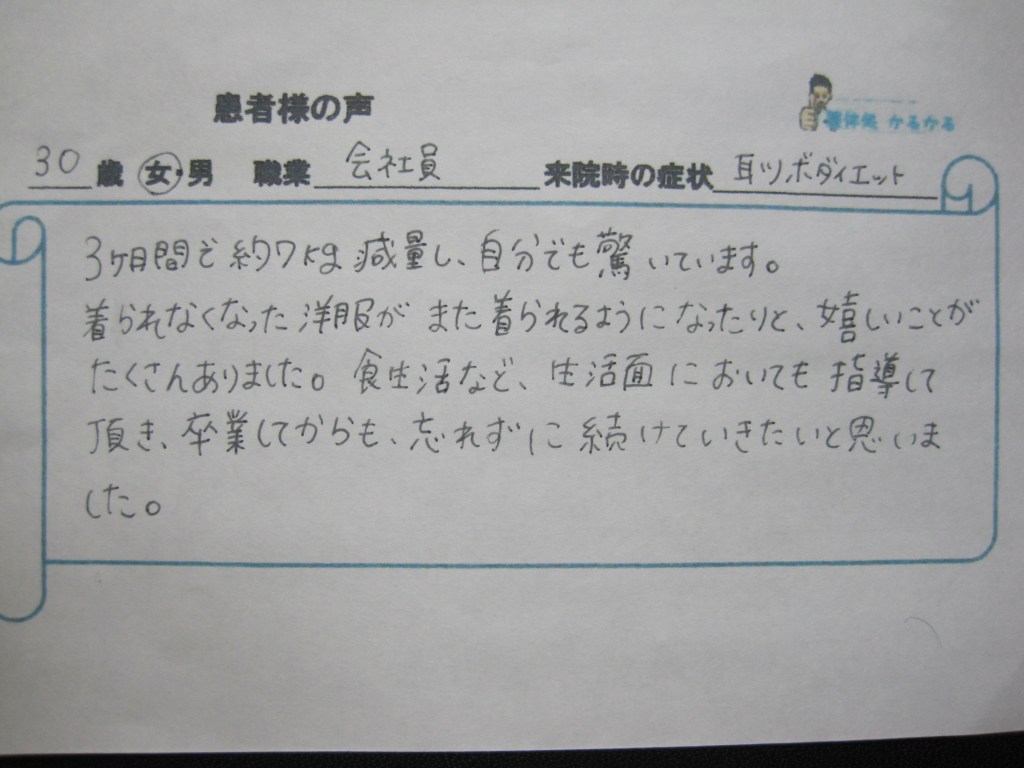 患者様の声
整体処 かるかる
30 歳 女・男 職業 会社員 来院時の症状 耳ツボダイエット
3ヶ月間で約7kg減量し、自分でも驚いています。
着られなくなった洋服がまた着られるようになったりと、嬉しいことが
たくさんありました。食生活など、生活面においても指導して
頂き、卒業してからも、忘れずに続けていきたいと思いま
した。